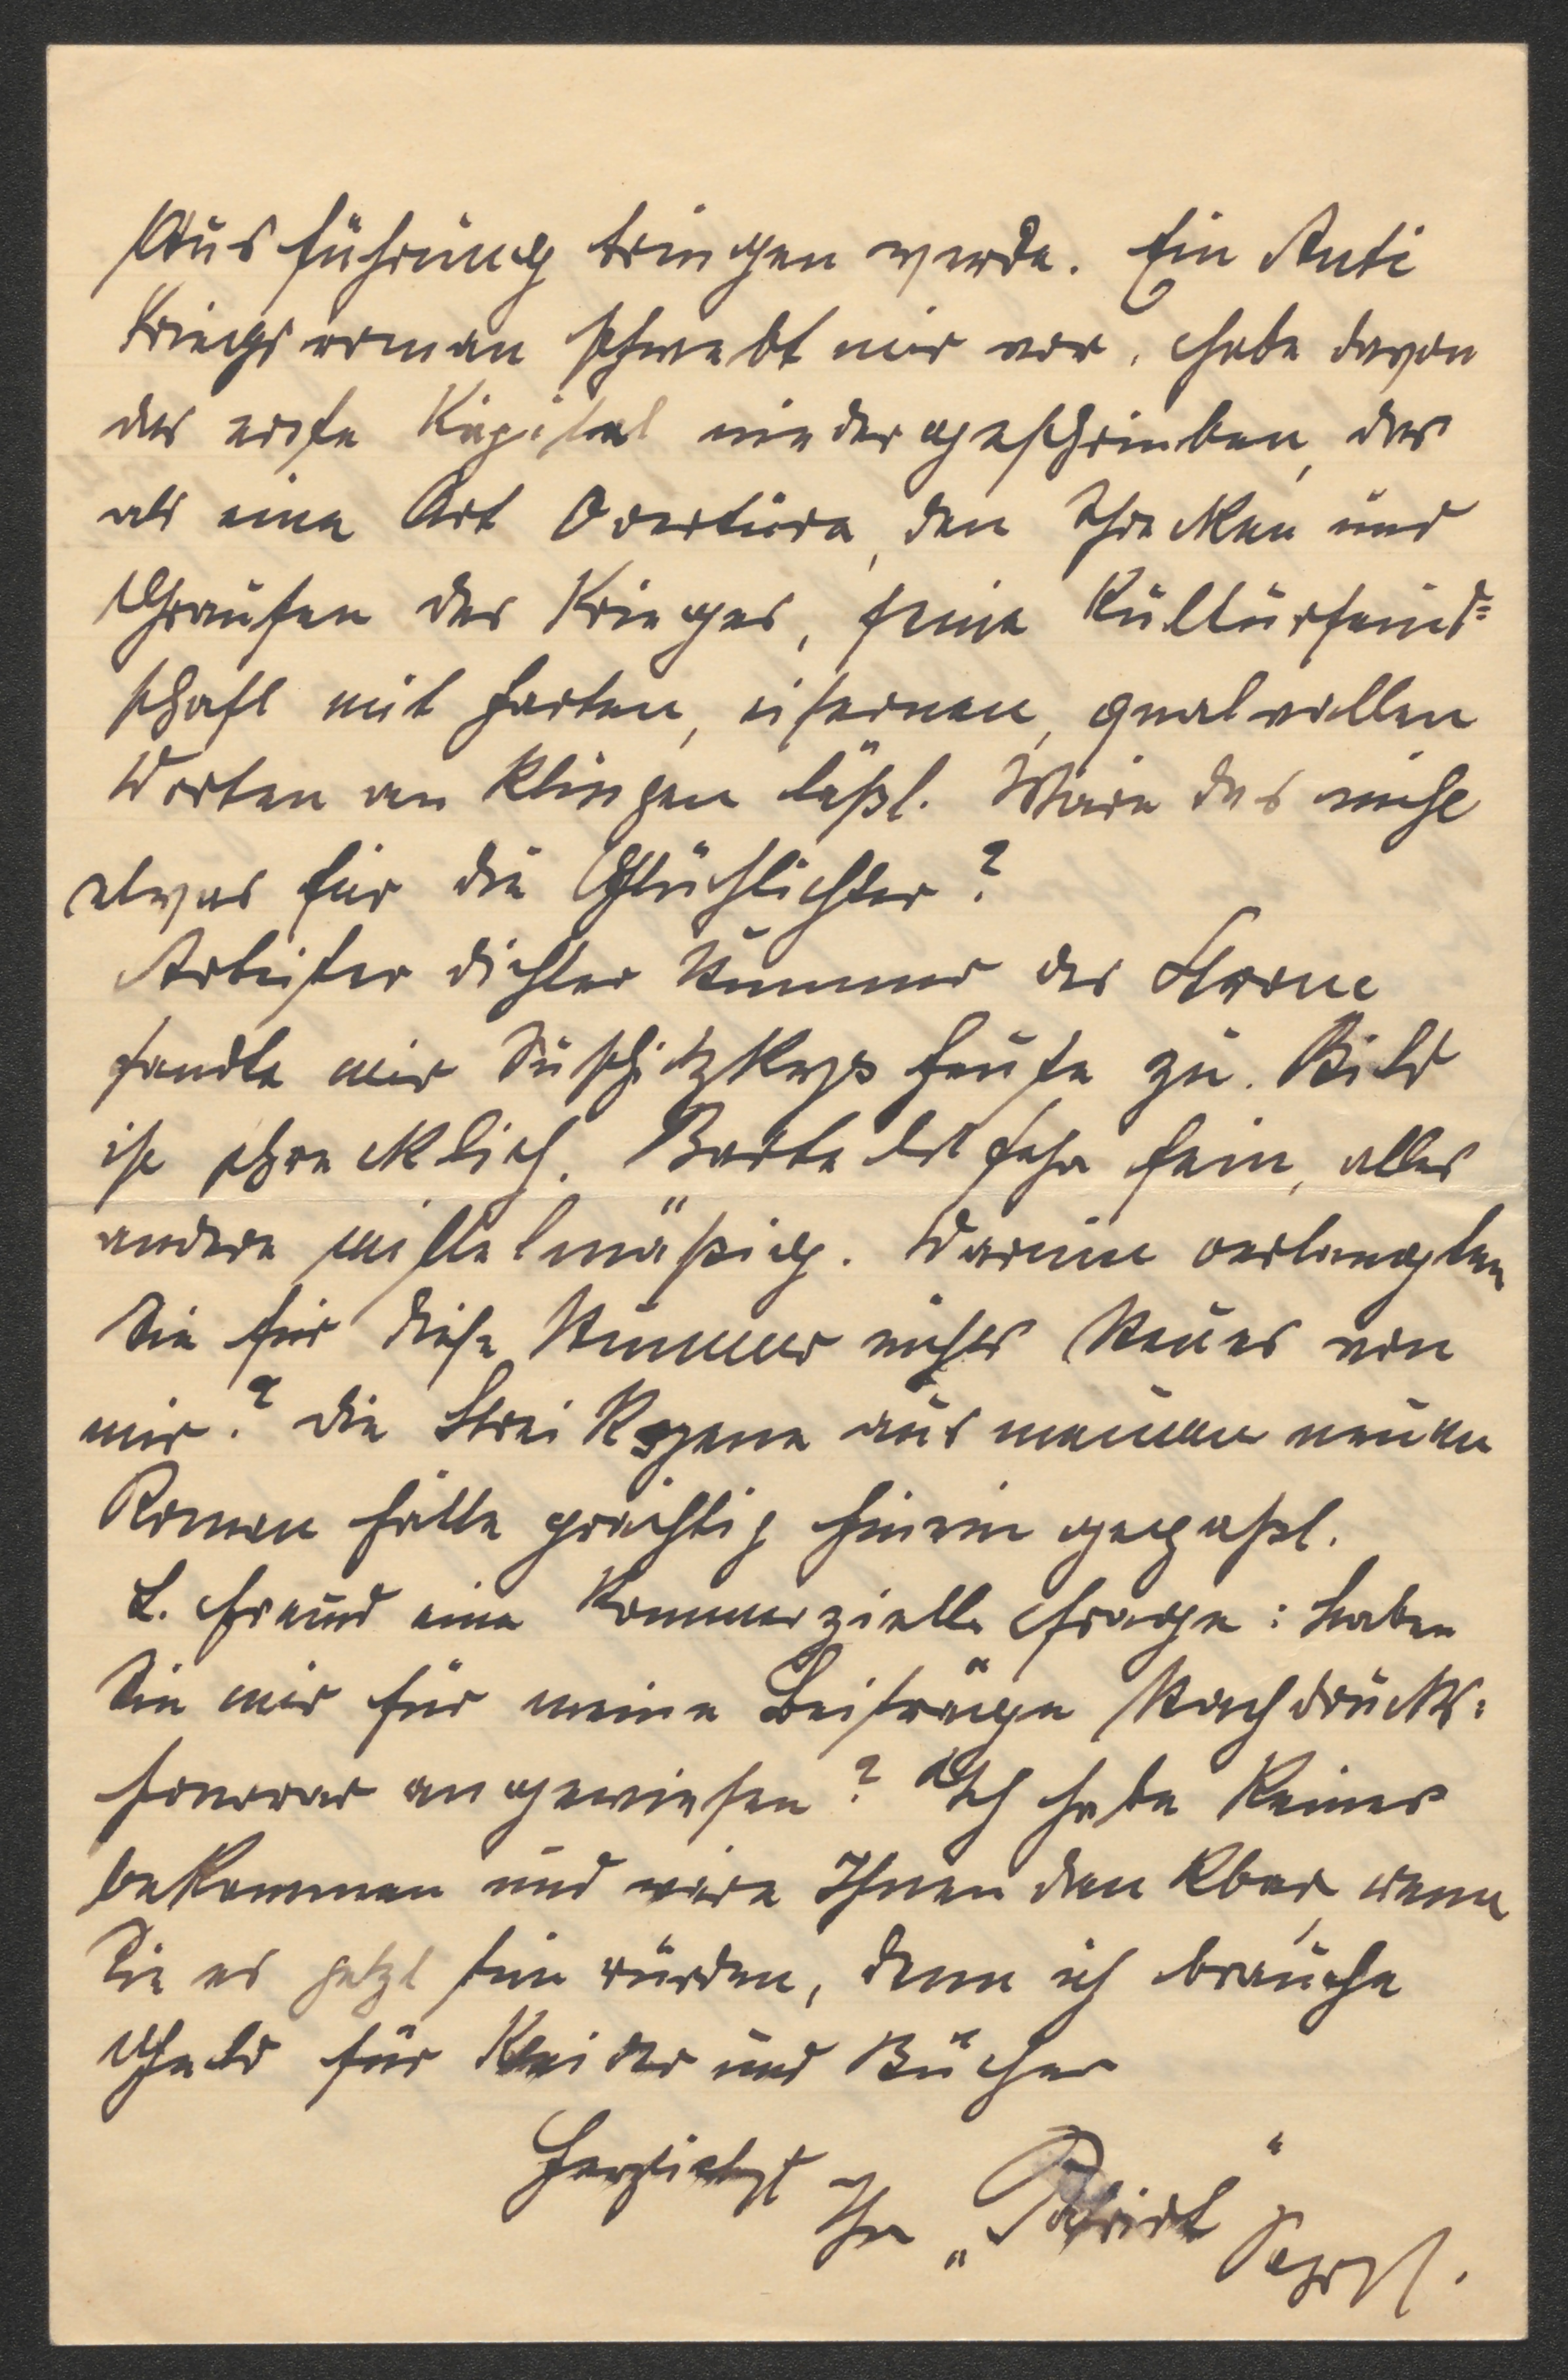 Ausführung bringen werde. Ein Anti
Kriegsroman schwebt mir vor, habe davon
das erste Kapitel niedergeschrieben, das
als eine Art Overtüre, den Schrecken und
Grausen des Krieges, seine Kulturfeind=
schaft mit harten, eisernen, qualvollen
Worten an klingen läßt. Wäre das nichts
etwas für die Glühlichter?
Arbeiter dichter Nummer der Sterne
sandte mir heute zu. Bild
ist schrecklich. Bartels sehr fein, alles
andere mittelmäßig. Warum verlangten
Sie für diese Nummer nichts Neues von
mir? Die Streikszene aus meinem neuen
Roman hätte prächtig hinein gepaßt.
L. Freund eine kommerzielle Frage: haben
Sie mir für meine Beiträge Nachdrucks=
honorar angewiesen? Ich habe keines
bekommen und wäre Ihnen dankbar, wenn
Sie es jetzt tun würden, denn ich brauche
Geld für Kleider und Bücher
Herzlichst
Ihr „Patriot"